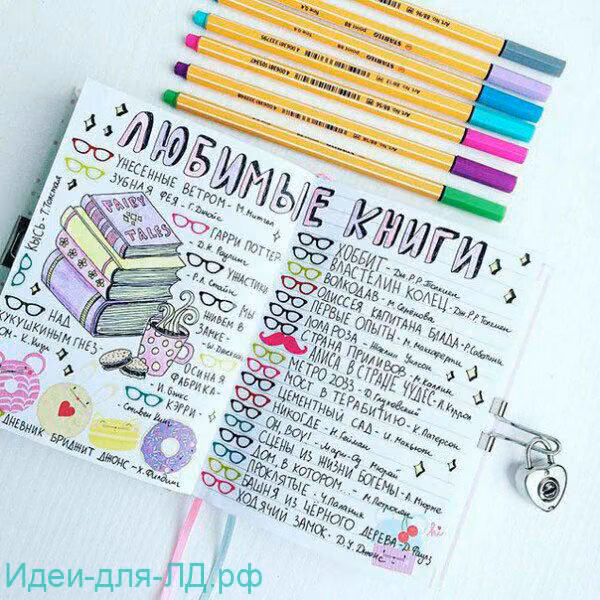 ЛЮБИМЫЕ КНИГИ
УНЕСЕННЫЕ ВЕТРОМ - М. Митчел
ЗУБНАЯ ФЕЯ - Г. Джойс
КЫСЬ - Т. Толстая
ГАРРИ ПОТТЕР -
Д.К. Роулинг
УЖАСТИКИ -
Р.Л. Стайн
МЫ
ЖИВЁМ В
ЗАМКЕ -
Ш. Джексон
НАД
КУКУШКИНЫМ ГНЕЗ
ДОМ - К. Кизи
ОСИНАЯ
ФАБРИКА -
И. Бэнкс
КЭРРИ -
Стивен Кинг
ДНЕВНИК БРИДЖИТ ДЖОНС - Х. Филдинг
FAIRY
TALES
ХОББИТ - Дж. Р.Р. Толкиен
ВЛАСТЕЛИН КОЛЕЦ - Дж. Р.Р. Толкиен
ВОЛКОДАВ - М. Семёнова
ОДИССЕЯ КАПИТАНА БЛАДА - Р. Сабатини
ПЕРВЫЕ ОПЫТЫ - М.
ЛОЛА РОЗА - Жаклин Уилсон
СТРАНА ПРИЛИВОВ - М. Каллин
АЛИСА В СТРАНЕ ЧУДЕС - Л. Кэррол
МЕТРО 2033 - Д. Глуховский
МОСТ В ТЕРАБИТИЮ - К. Патерсон
ЦЕМЕНТНЫЙ САД - И. Макьюэн
НИКОГДЕ - Н. Гейман
ОН, BOY! - Мари-Од Мюрай
СЦЕНЫ ИЗ ЖИЗНИ БОГЕМЫ - А. Мюрже
ДОМ, В КОТОРОМ... - М. Петросян
ПРОКЛЯТЫЕ - Ч. Паланик
БАШНЯ ИЗ ЧЁРНОГО ДЕРЕВА - Д. Фаулз
ХОДЯЧИЙ ЗАМОК - Д.У. Джонс
hi
Идеи-для-ЛД.рф